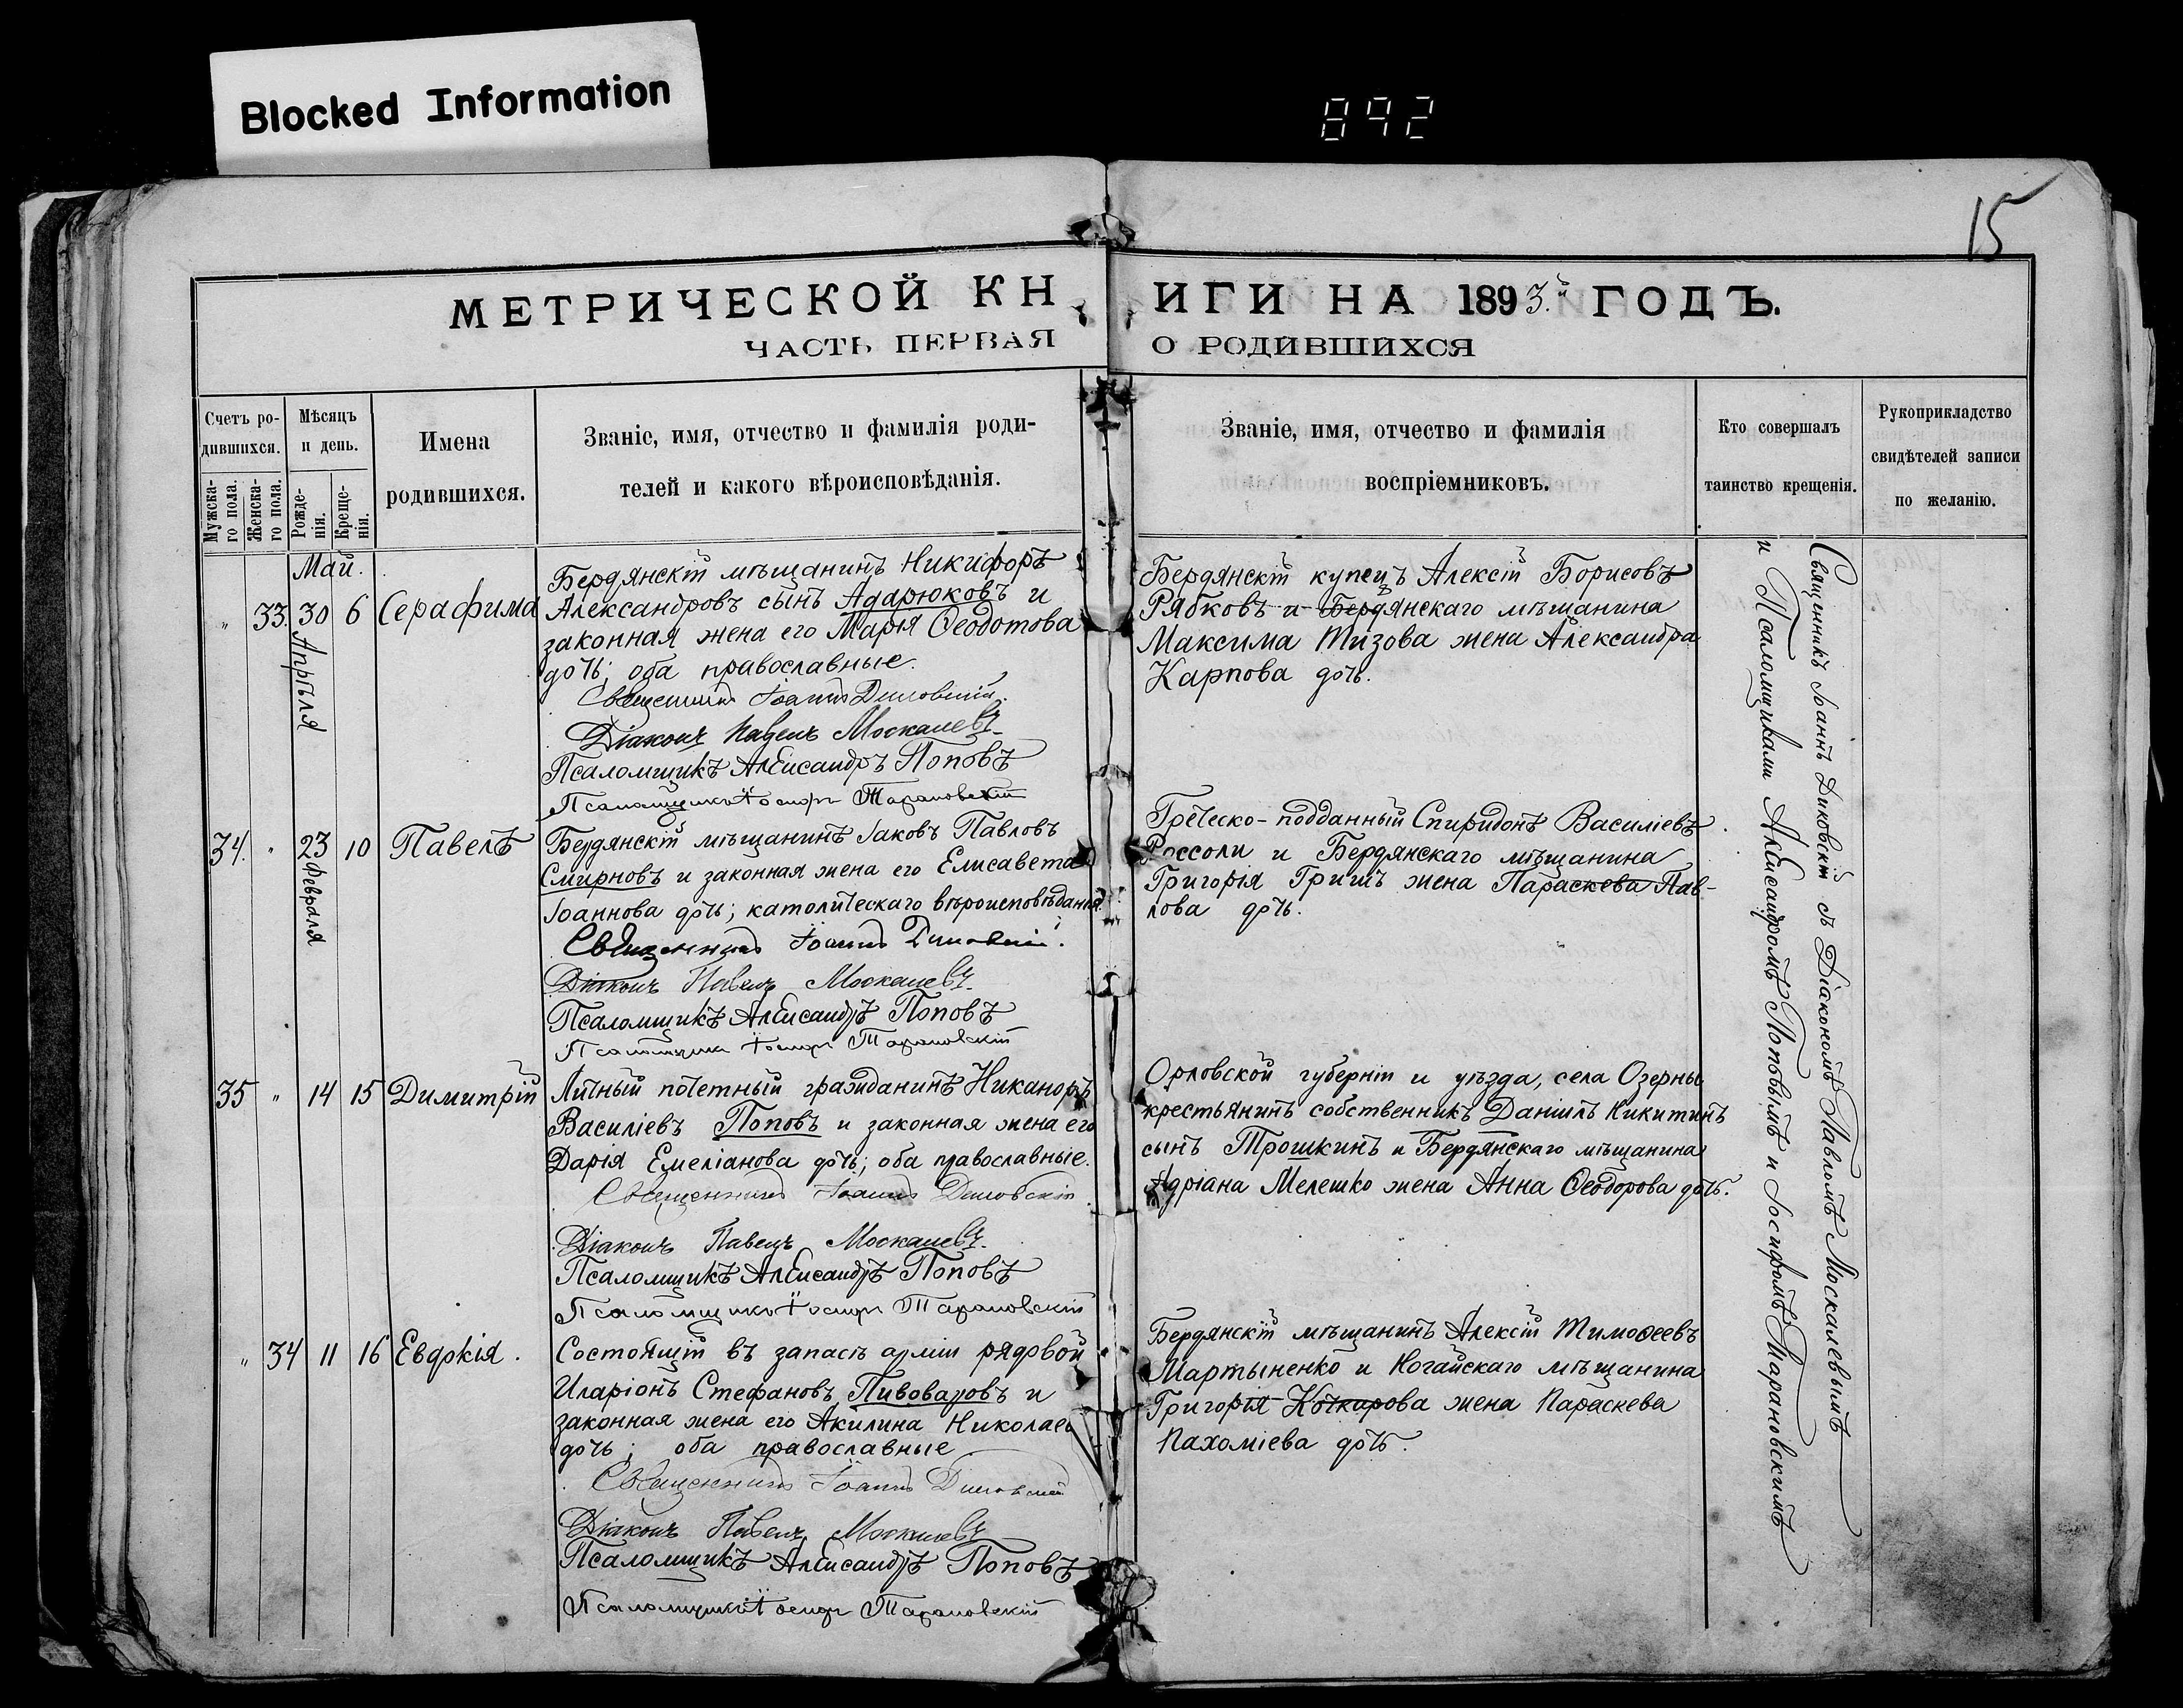 Blocked Information
892
15
МЕТРИЧЕСКОЙ КНИГИ НА 1893.й ГОДЪ.
ЧАСТЬ ПЕРВАЯ О РОДИВШИХСЯ
Счетъ ро-
дившихся.
Мужска-
го пола.
Женска-
го пола.
Мѣсяцъ
и день.
Рожде-
нія.
Креще-
нія.
Имена
родившихся.
Званіе, имя, отчество и фамилія роди-
телей и какого вѣроисповѣданія.
Званіе, имя, отчество и фамилія
воспріемниковъ.
Кто совершалъ
таинство крещенія.
Рукоприкладство
свидѣтелей записи
по желанію.
Май.
" 33. 30 6 Серафима
Апрѣля
Бердянскій мѣщанинъ Никифоръ
Александровъ сынъ Адарюковъ и
законная жена его Марія Ѳеодотова
дочь; оба православные.
Священникъ Іоаннъ Диковскій.
Діаконъ Павелъ Москалевъ
Псаломщикъ Александръ Поповъ
Псаломщикъ Іосифъ Тарановскій
Бердянскій купецъ Алексій Борисовъ
Рябковъ и Бердянскаго мѣщанина
Максима Тизова жена Александра
Карпова дочь.
34. " 23 10 Павелъ
Февраля
Бердянскій мѣщанинъ Іаковъ Павловъ
Смирновъ и законная жена его Елисавета
Іоаннова дочь; католическаго вѣроисповѣданія.
Священникъ Іоаннъ Диковскій.
Діаконъ Павелъ Москалевъ
Псаломщикъ Александръ Поповъ
Псаломщикъ Іосифъ Тарановскій
Греческо-подданный Спиридонъ Василіевъ
Россоли и Бердянскаго мѣщанина
Григорія Гришъ жена Параскева Пав-
лова дочь.
35 " 14 15 Димитрій
Личный почетный гражданинъ Никаноръ
Василіевъ Поповъ и законная жена его
Дарія Емеліанова дочь; оба православные.
Священникъ Іоаннъ Диковскій
Діаконъ Павелъ Москалевъ
Псаломщикъ Александръ Поповъ
Псаломщикъ Іосифъ Тарановскій
Орловской губерніи и уѣзда, села Озерны
крестьянинъ собственникъ Даніилъ Никитинъ
сынъ Трошкинъ и Бердянскаго мѣщанина
Адріана Мелешко жена Анна Ѳеодорова дочь.
" 34 11 16 Евдокія.
Состоящій въ запасѣ арміи рядовой
Иларіонъ Стефановъ Пивоваровъ и
законная жена его Акилина Николаева
дочь; оба православные
Священникъ Іоаннъ Диковскій
Діаконъ Павелъ Москалевъ
Псаломщикъ Александръ Поповъ
Псаломщикъ Іосифъ Тарановскій
Бердянскій мѣщанинъ Алексій Тимоѳеевъ
Мартыненко и Ногайскаго мѣщанина
Григорія Кочкарова жена Параскева
Пахоміева дочь.
Священникъ Іоаннъ Диковскій съ Діакономъ Павломъ Москалевымъ
и Псаломщиками Александромъ Поповымъ и Іосифомъ Тарановскимъ